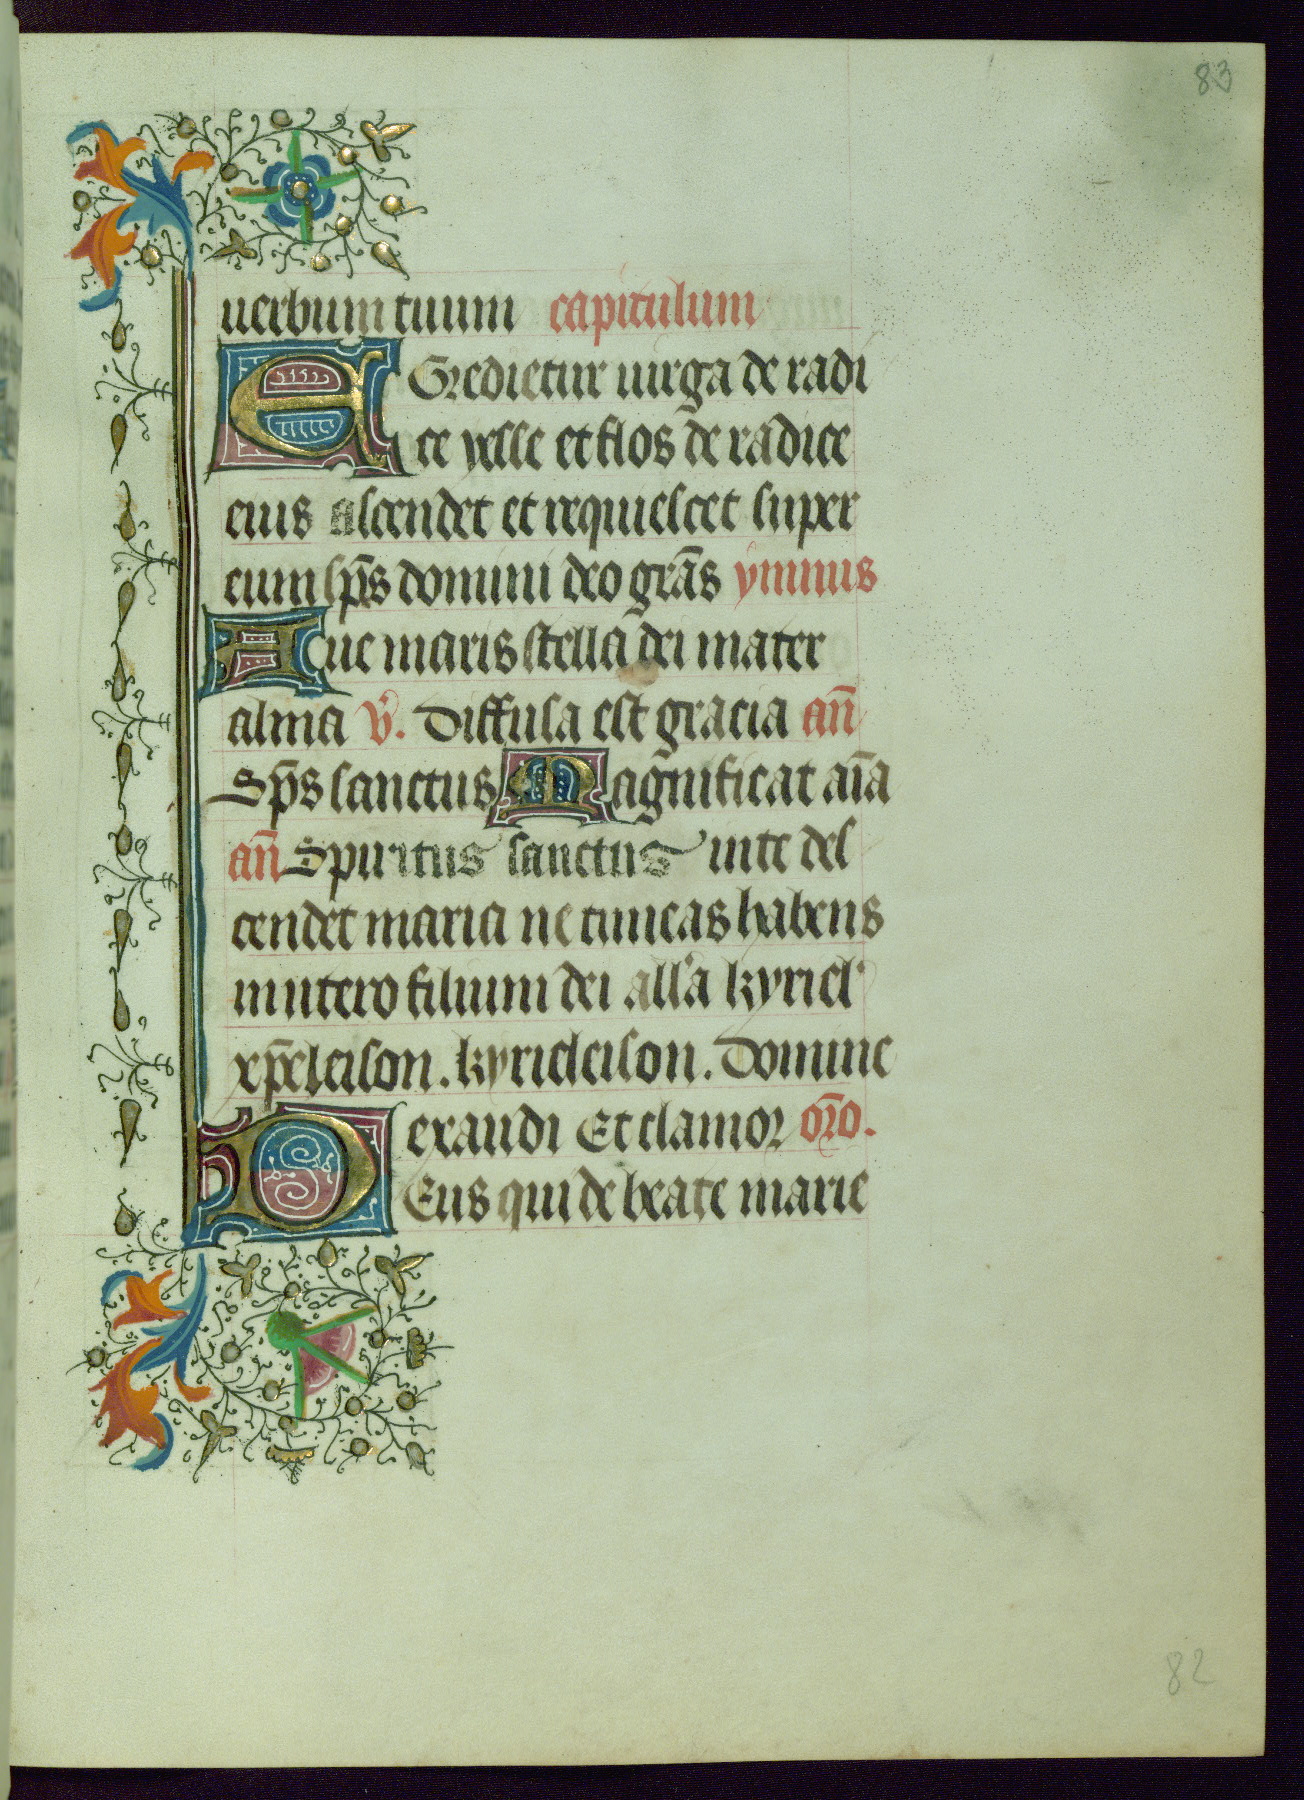 83
uerbum tuum capitulum
EGredietur uirga de radi
ce yesse et flos de radice
eius ascendet et requiescet super
eum sp̄s domini deo grā̄s ymnus
Aue maris stella dei mater
alma v̄. Diffusa est gracia an̄
Sp̄s sanctus Magnificat aīa
an̄ Spiritus sanctus in te des
cendet maria ne timeas habens
in utero filium dei all'a kyriel'
xp̄eleison. kyrieleison. Domine
exaudi Et clamor or̄o.
DEus qui de beate marie
82